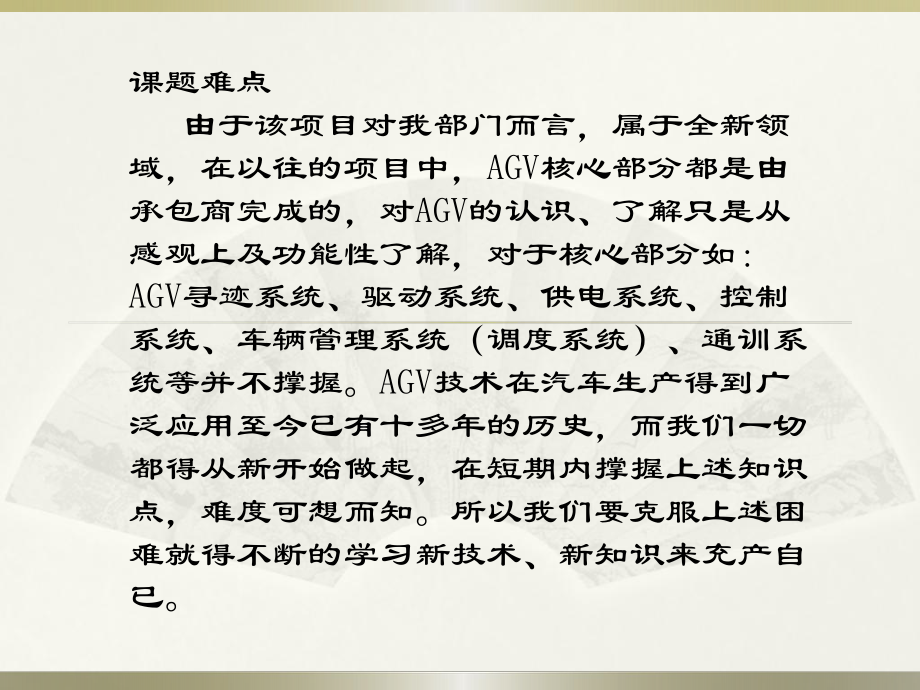 课题难点
由于该项目对我部门而言，属于全新领
域，在以往的项目中，AGV核心部分都是由
承包商完成的，对AGV的认识、了解只是从
感观上及功能性了解，对于核心部分如：
AGV寻迹系统、驱动系统、供电系统、控制
系统、车辆管理系统（调度系统）、通训系
统等并不撑握。AGV技术在汽车生产得到广
泛应用至今已有十多年的历史，而我们一切
都得从新开始做起，在短期内撑握上述知识
点，难度可想而知。所以我们要克服上述困
难就得不断的学习新技术、新知识来充产自
已。